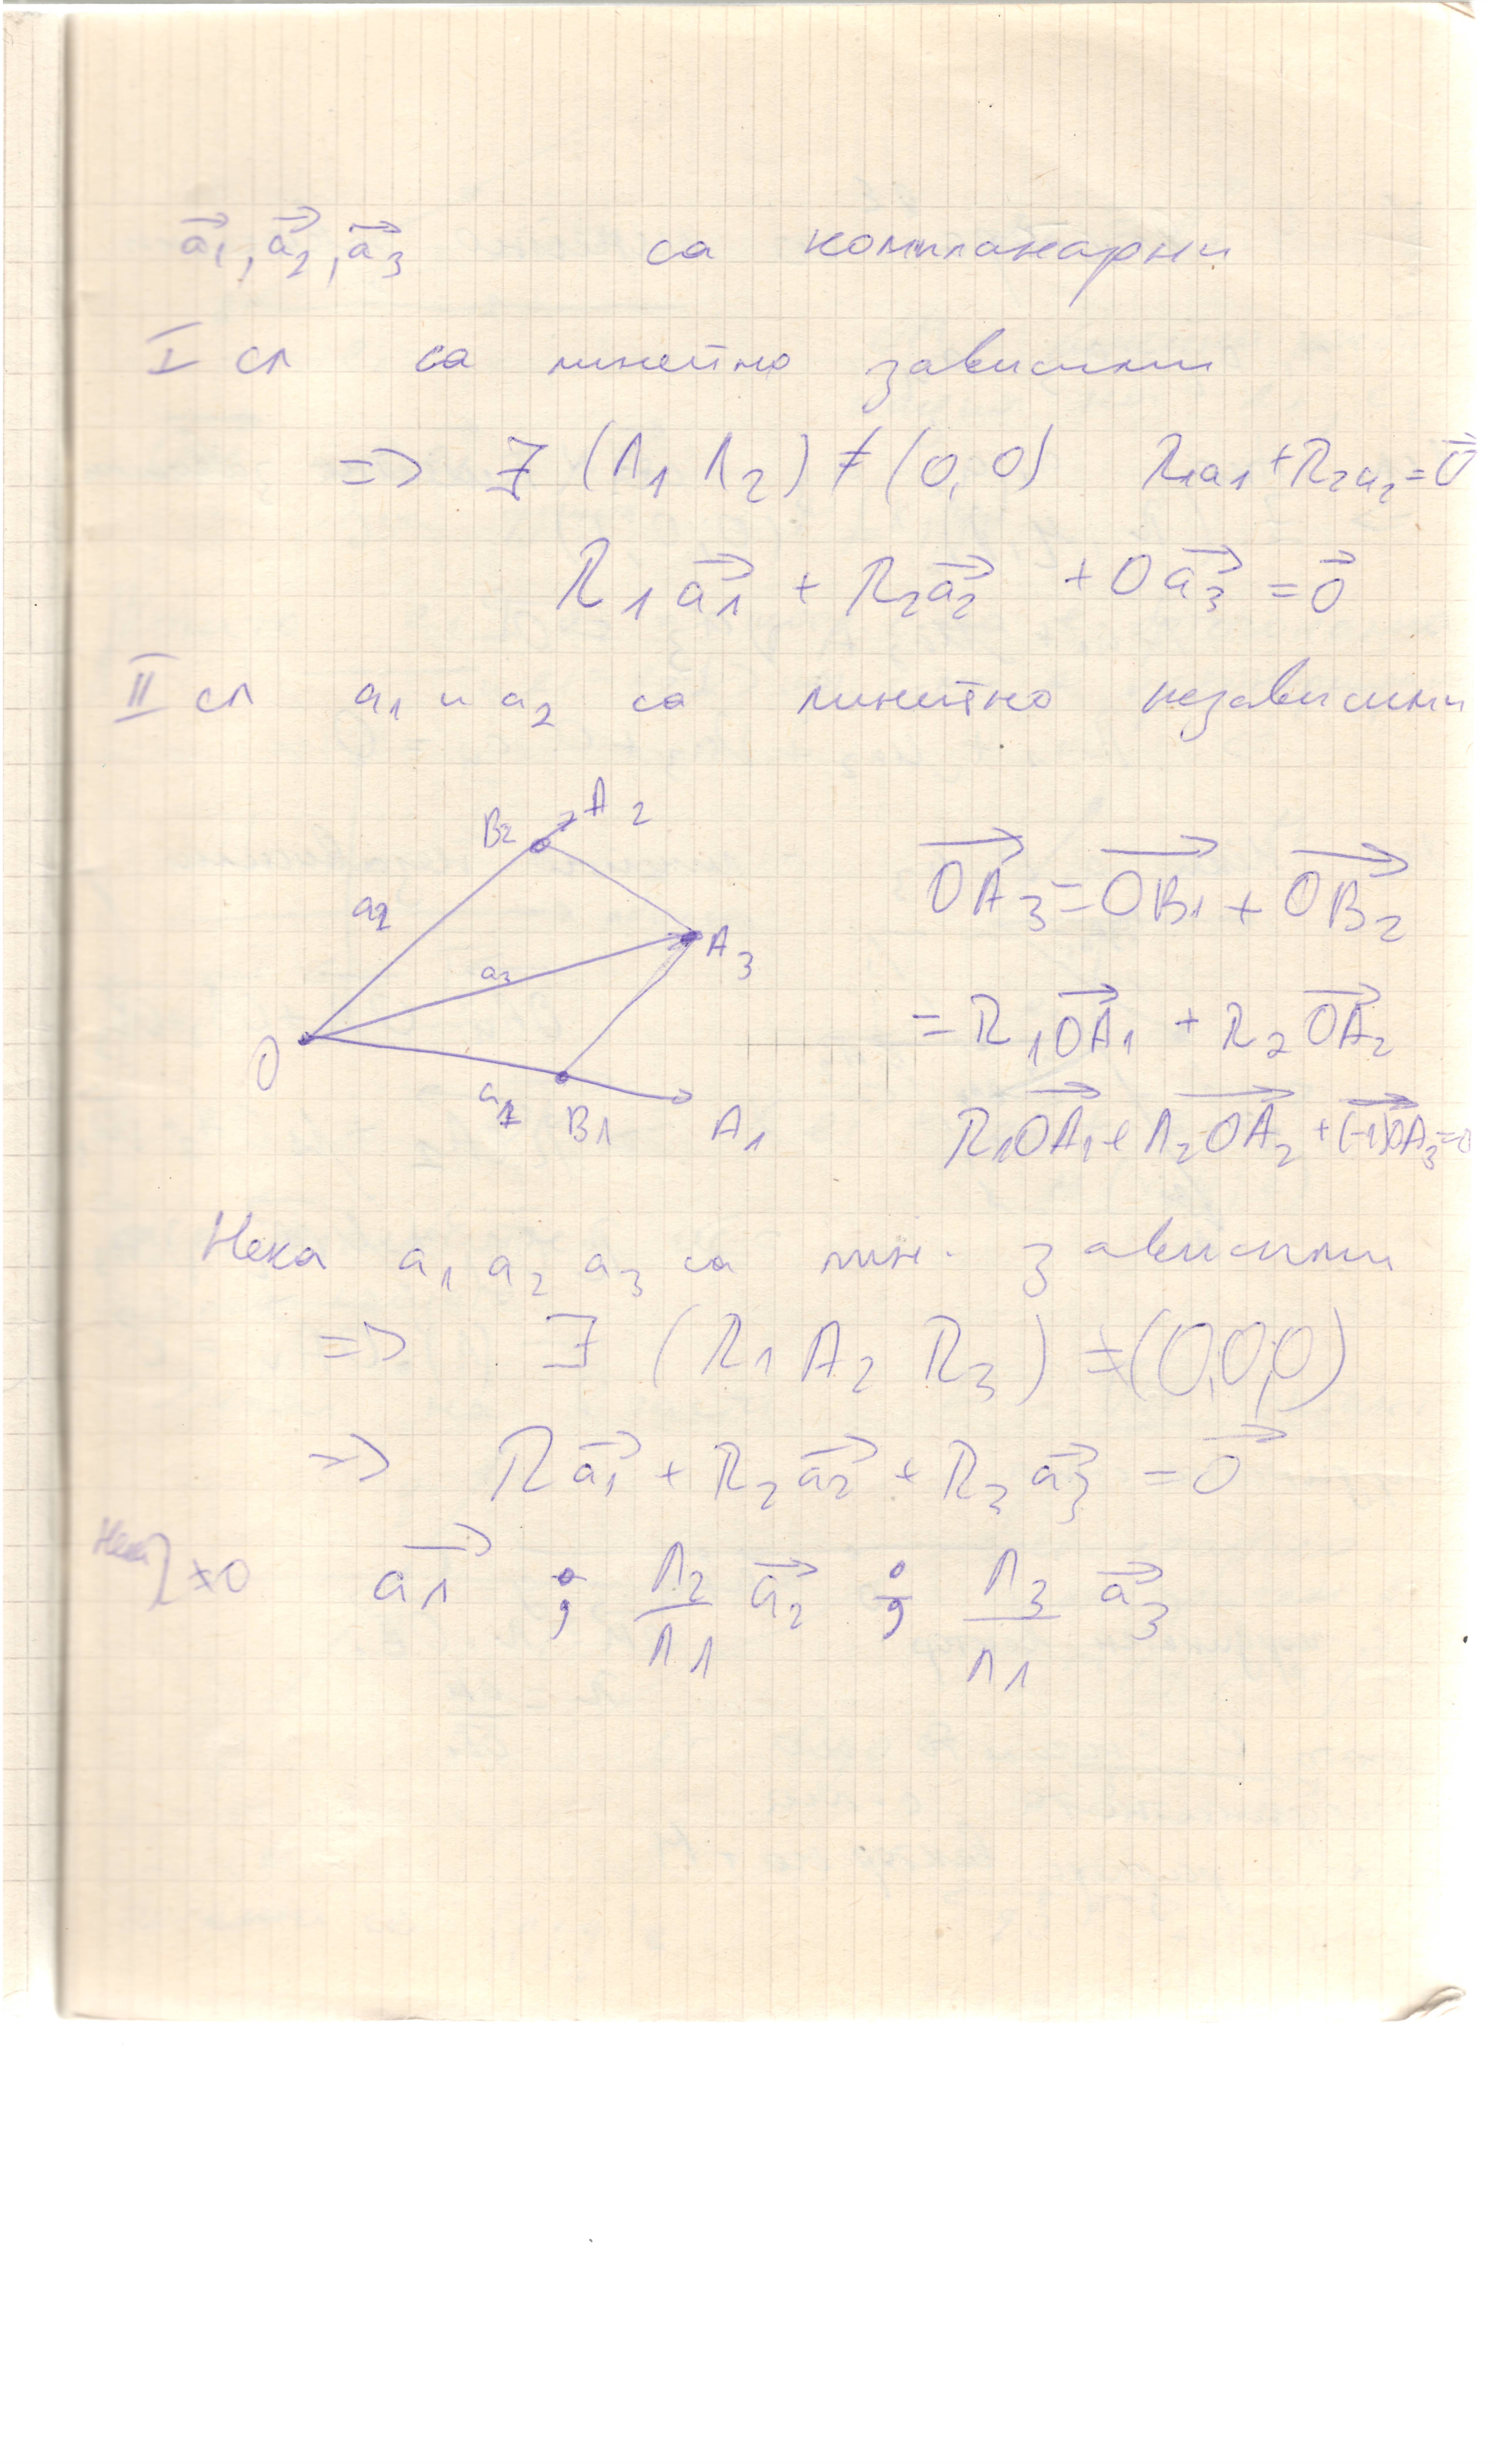 a⃗1, a⃗2, a⃗3 са компланарни
I сл са линейно зависими
=> ∃ (λ1 λ2) ≠ (0,0) λ1a1 + λ2a2 = 0⃗
λ1 a⃗1 + λ2 a⃗2 + 0 a⃗3 = 0⃗
II сл a1 и a2 са линейно независими
B2 A2
a2
a3
A3
O
a1 B1 A1
O⃗A3 = O⃗B1 + O⃗B2
= λ1 O⃗A1 + λ2 O⃗A2
λ1 O⃗A1 + λ2 O⃗A2 + (-1) O⃗A3 = 0
Нека a1 a2 a3 са лин. зависими
=> ∃ (λ1 λ2 λ3) ≠ (0,0,0)
=> λ a⃗1 + λ2 a⃗2 + λ3 a⃗3 = 0⃗
Нека λ ≠ 0 a⃗1 ; λ2/λ1 a⃗2 ; λ3/λ1 a⃗3